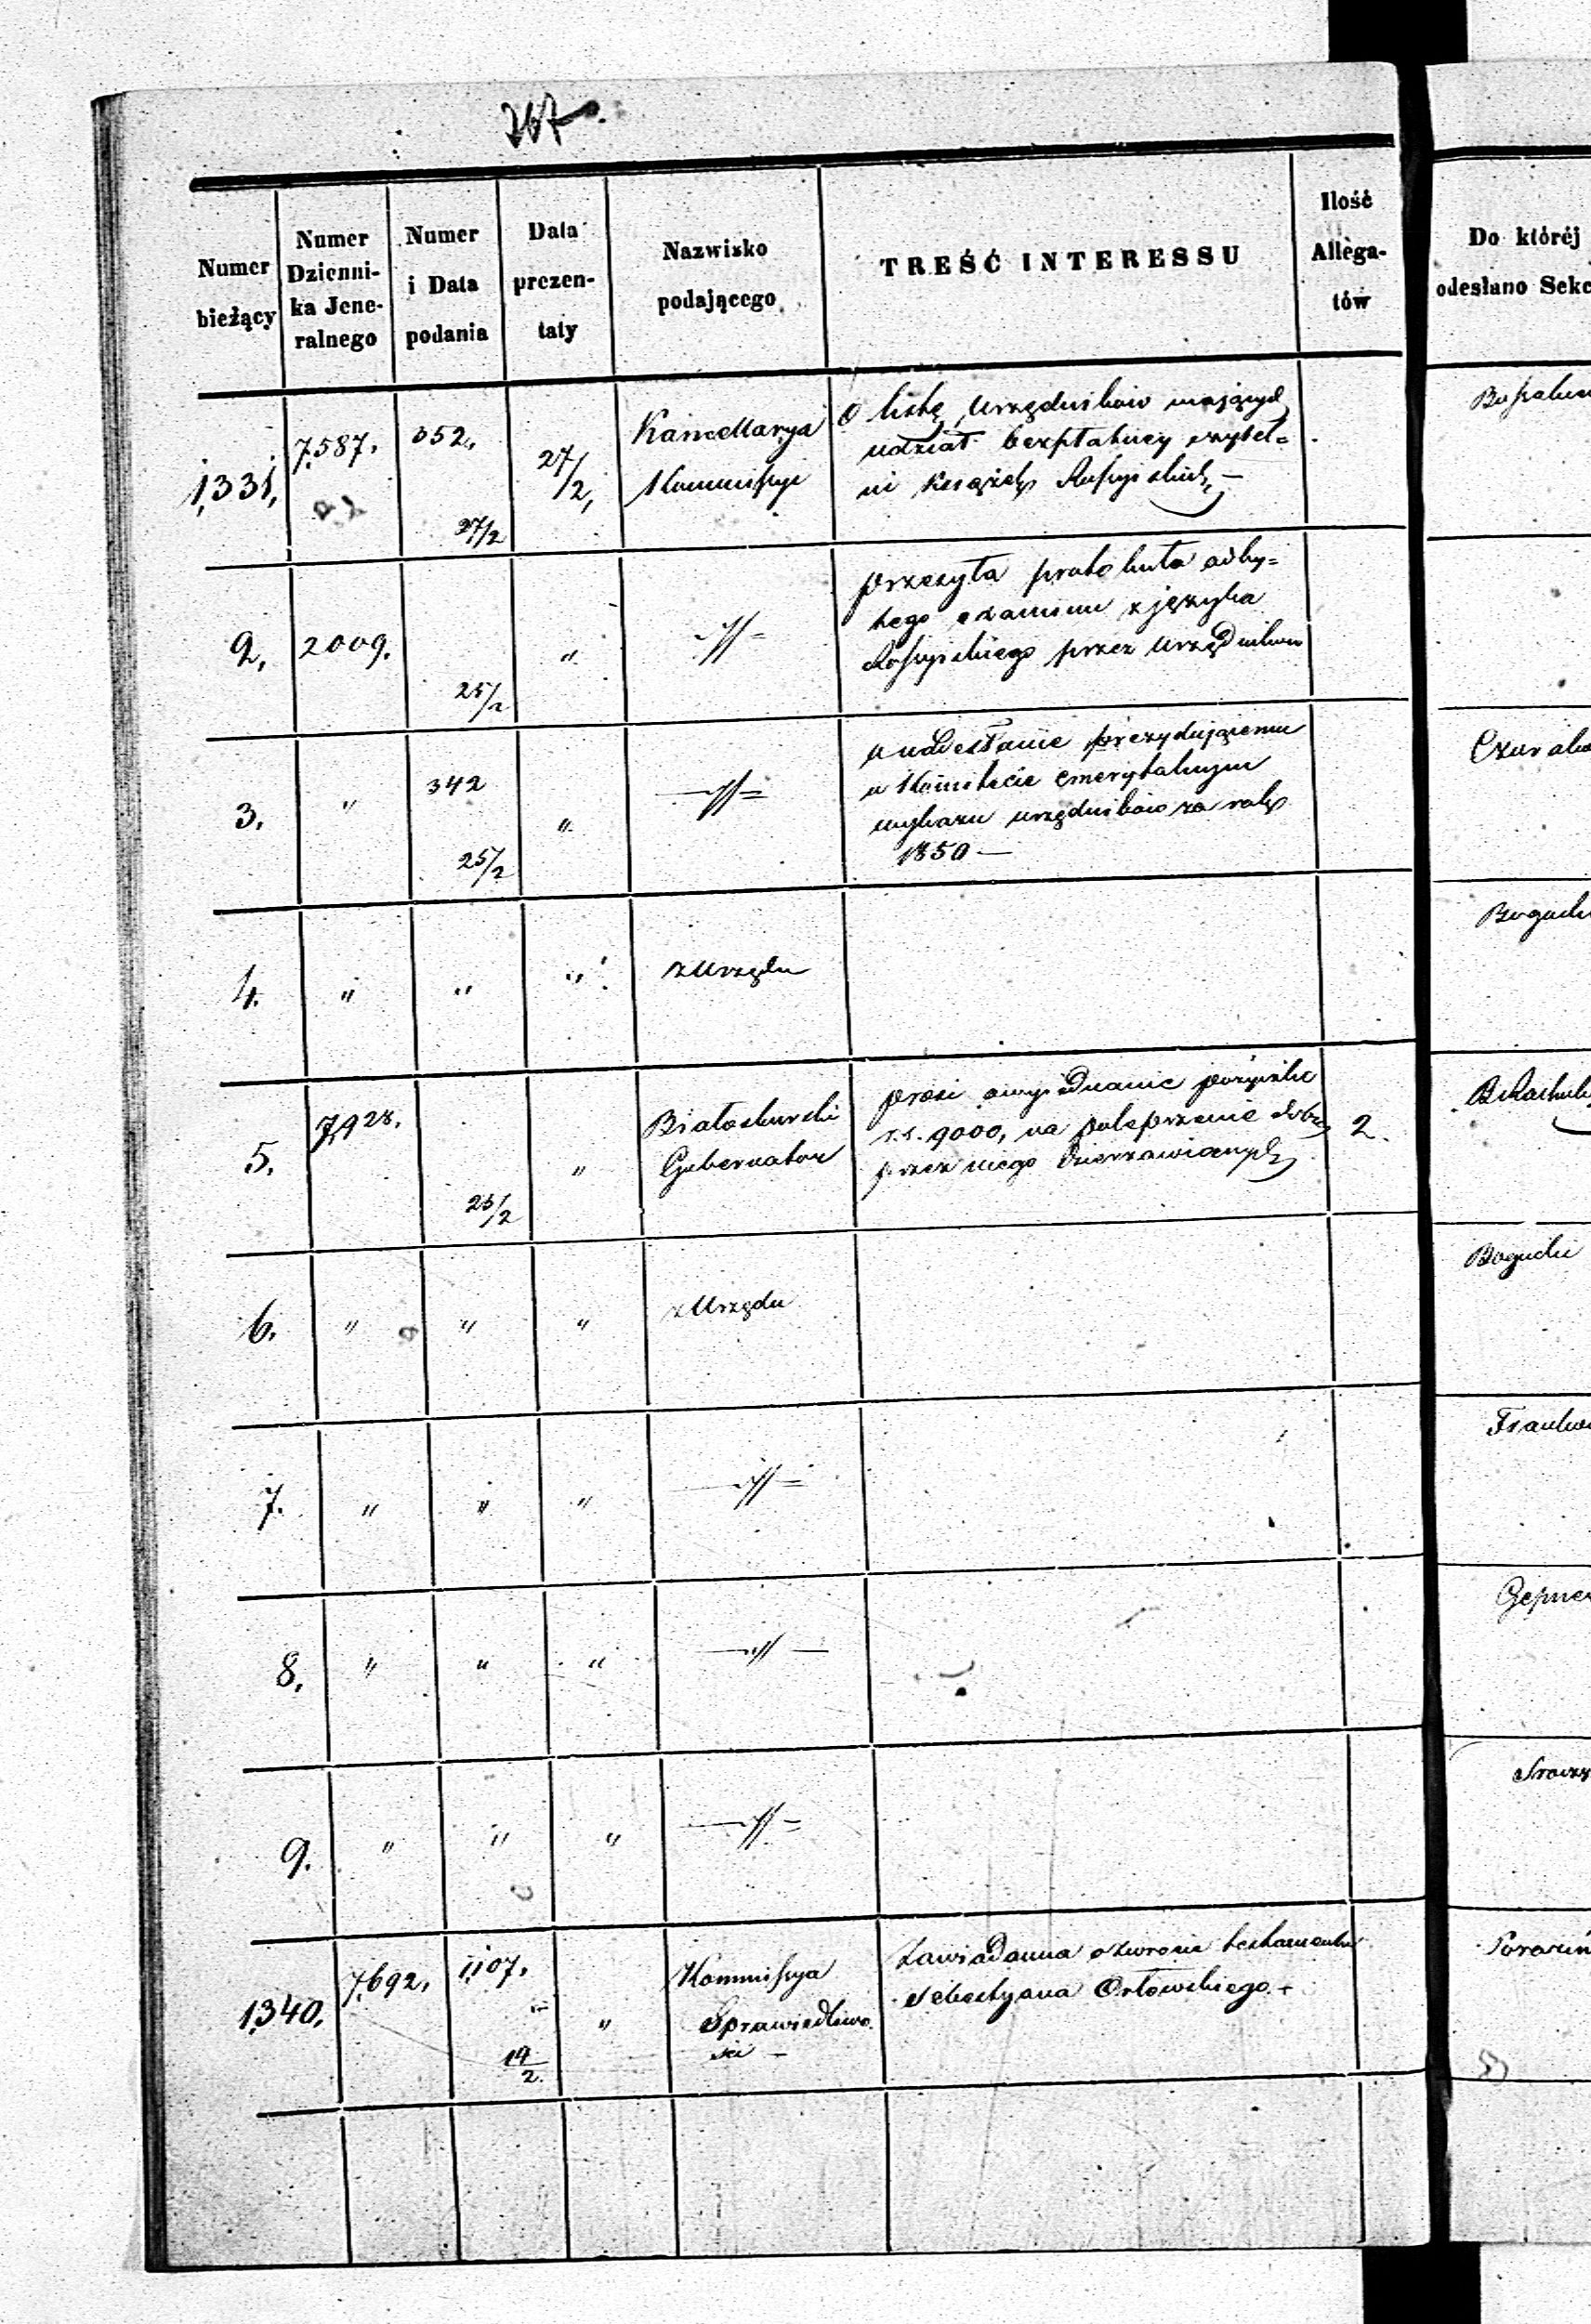 267.
Numer bieżący
Numer Dzienni-ka Jene-ralnego
Numer i Data podania
Data prezen-taty
Nazwisko podającego
TREŚĆ INTERESSU
Ilość Allega-tów
Do któréj
odesłano Sekc
1,331, 7,587. 352. 27/2 27/2,
Kancellarya
Kommissyi
O listę urzędników mających
udział bezpłatney czytel=
ni książek Rossyiskich, —
2, 2009. 25/2 "
przesyła protokuła odby=
tego examinu z języka
Rossyiskiego przez urzędników
3, " 342 25/2 "
o nadesłanie prezydującemu
w Komitecie Emerytalnym
wykazu urzędników za rok
1850 —
Czarako
4. " " " z Urzędu
Boguck
5. 7,928. 25/2 "
Białoskurski
Gubernator
prosi o wyiednanie pożyczki
r.s. 9000, na polepszenie dóbr
przez niego dzierżawionych
2.
6. " " " z Urzędu
Bogucki
7. " " "
8. " " "
Gepner
9. " " "
1,340. 7,692. 1,107. 19/2. "
Kommissya
Sprawiedliwo
ści —
Zawiadamia o zwrocie testamentu
Sebastyana Orłowskiego. —